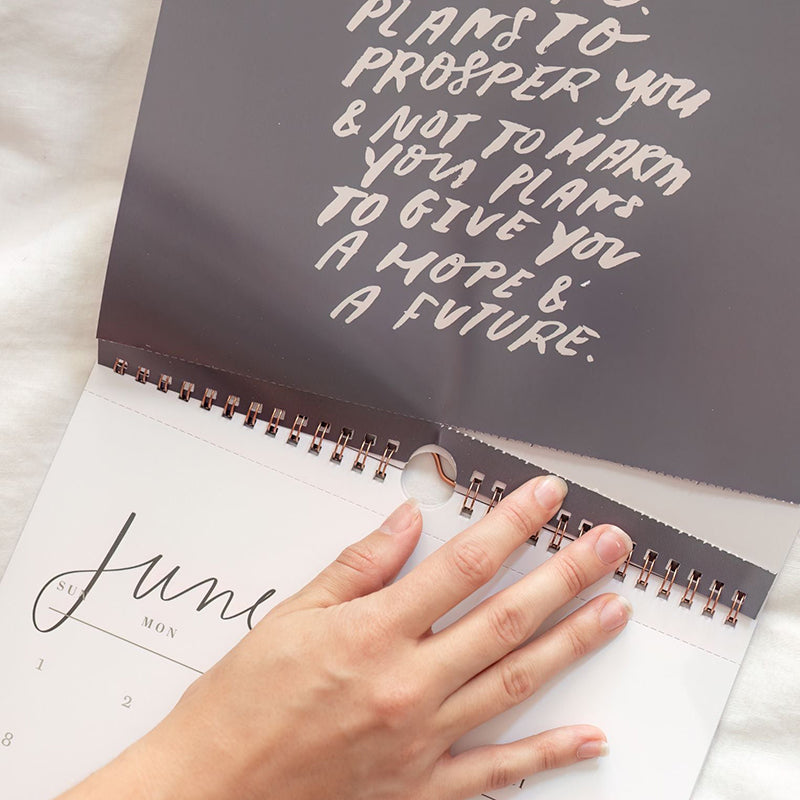 PLANS TO
PROSPER YOU
& NOT TO HARM
YOU PLANS
TO GIVE YOU
A HOPE &
A FUTURE.
June
SUN
MON
1
2
8